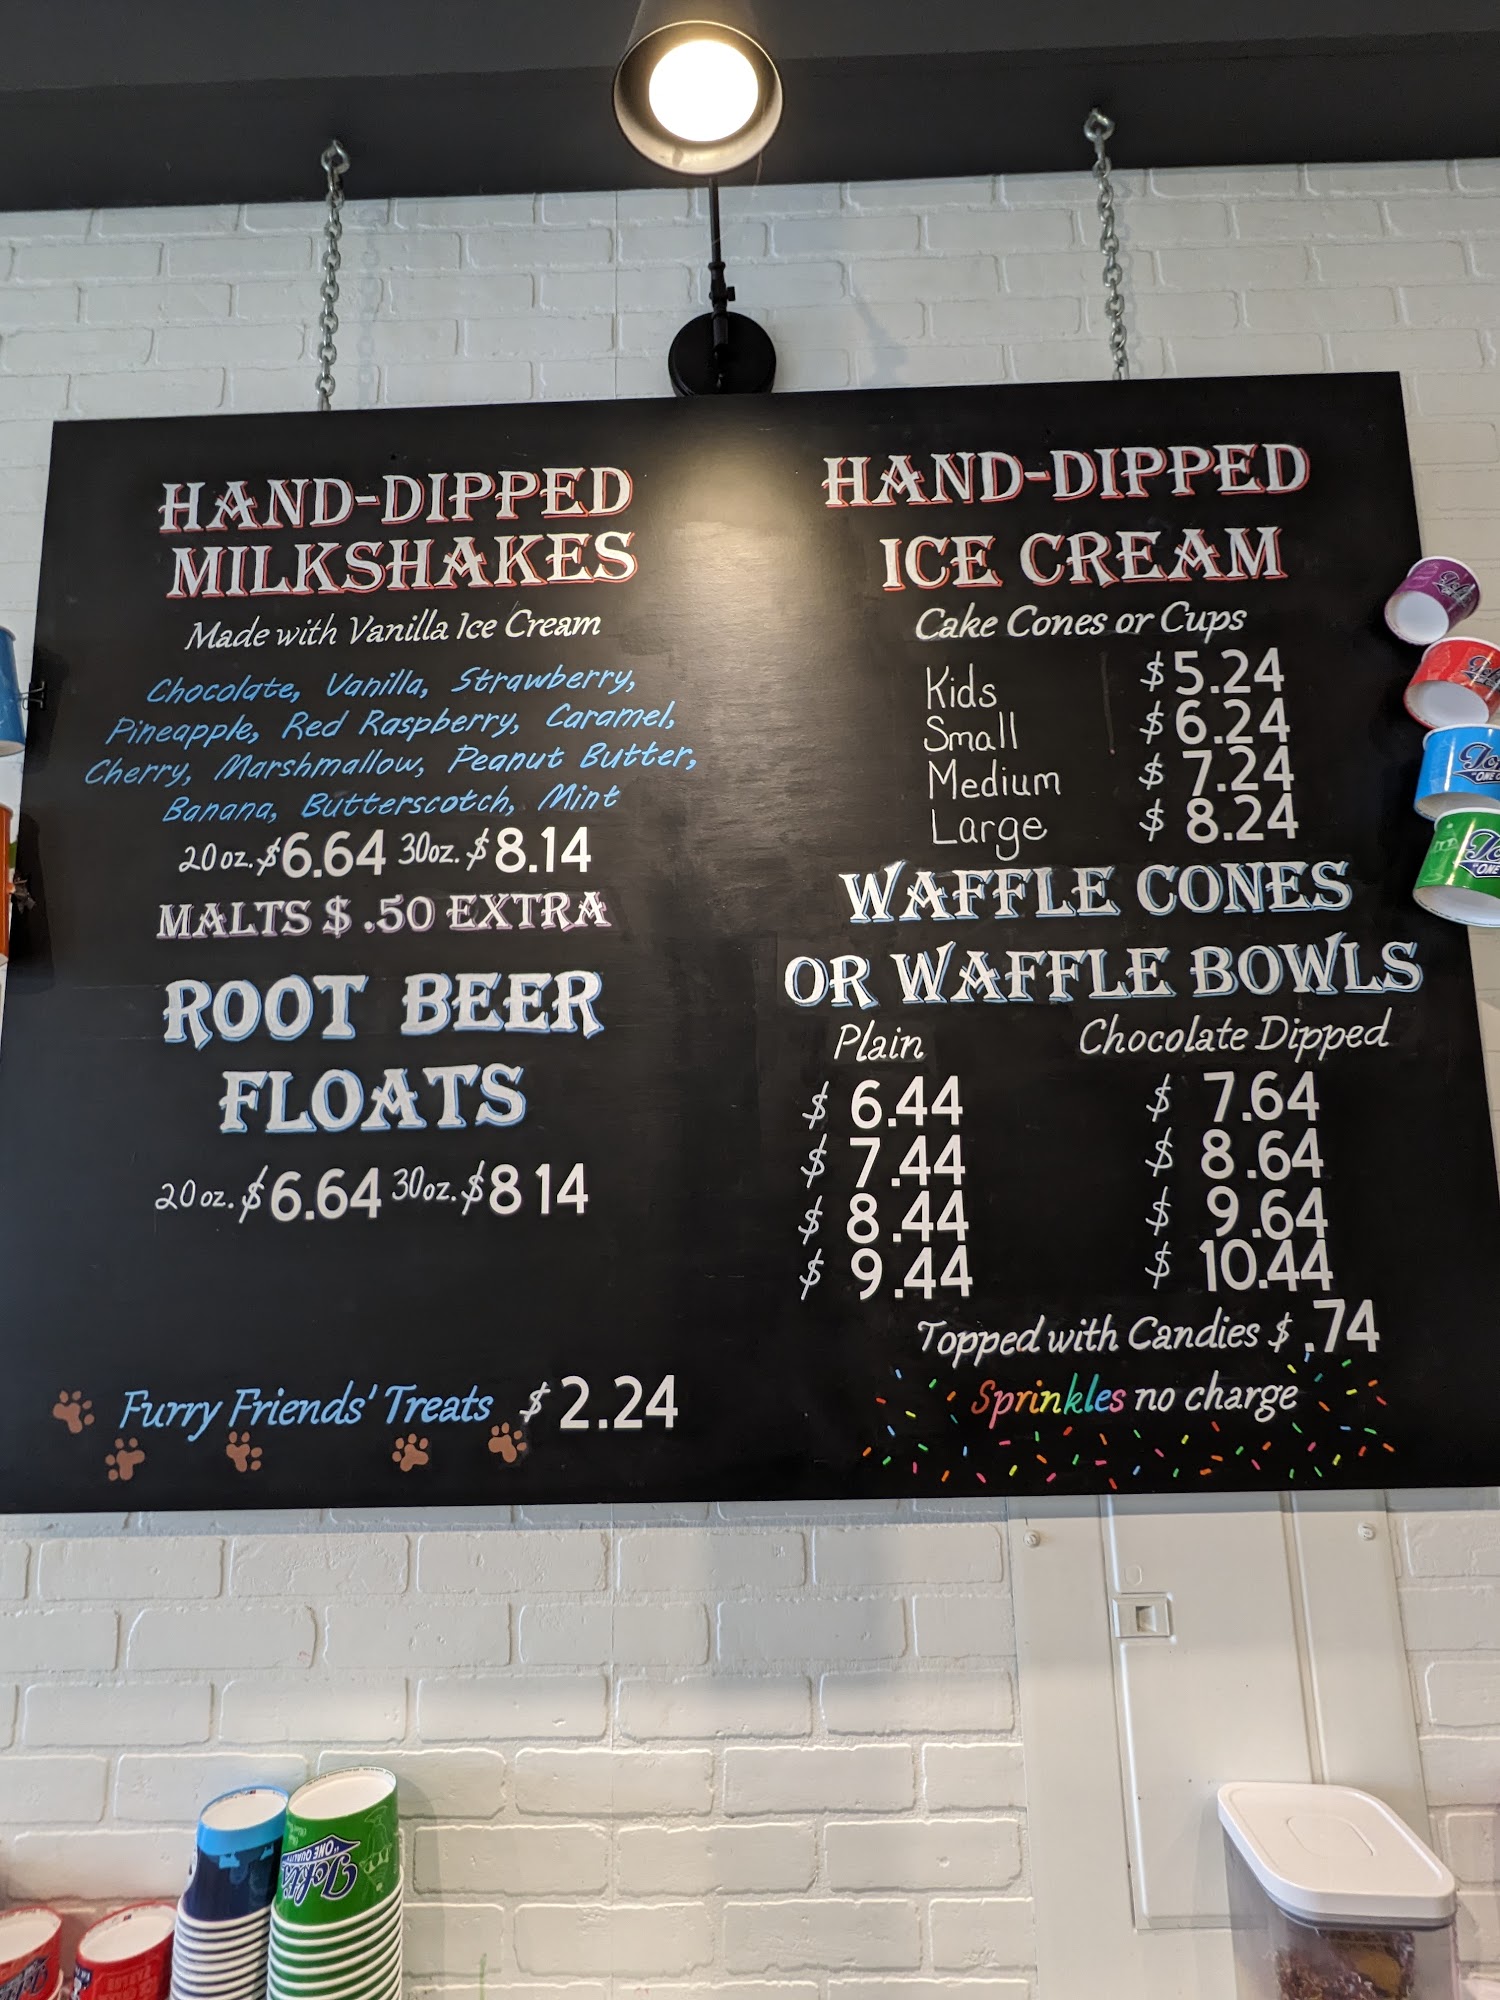 HAND-DIPPED
MILKSHAKES
Made with Vanilla Ice Cream
Chocolate, Vanilla, Strawberry,
Pineapple, Red Raspberry, Caramel,
Cherry, Marshmallow, Peanut Butter,
Banana, Butterscotch, Mint
20 oz. $6.64 30oz. $8.14
MALTS $ .50 EXTRA
ROOT BEER
FLOATS
20 oz. $6.64 30oz. $8 14
Furry Friends' Treats $2.24
HAND-DIPPED
ICE CREAM
Cake Cones or Cups
Kids $5.24
Small $6.24
Medium $7.24
Large $8.24
WAFFLE CONES
OR WAFFLE BOWLS
Plain Chocolate Dipped
$ 6.44 $ 7.64
$ 7.44 $ 8.64
$ 8.44 $ 9.64
$ 9.44 $ 10.44
Topped with Candies $ .74
Sprinkles no charge
"ONE
Toft's
"ONE QUALITY